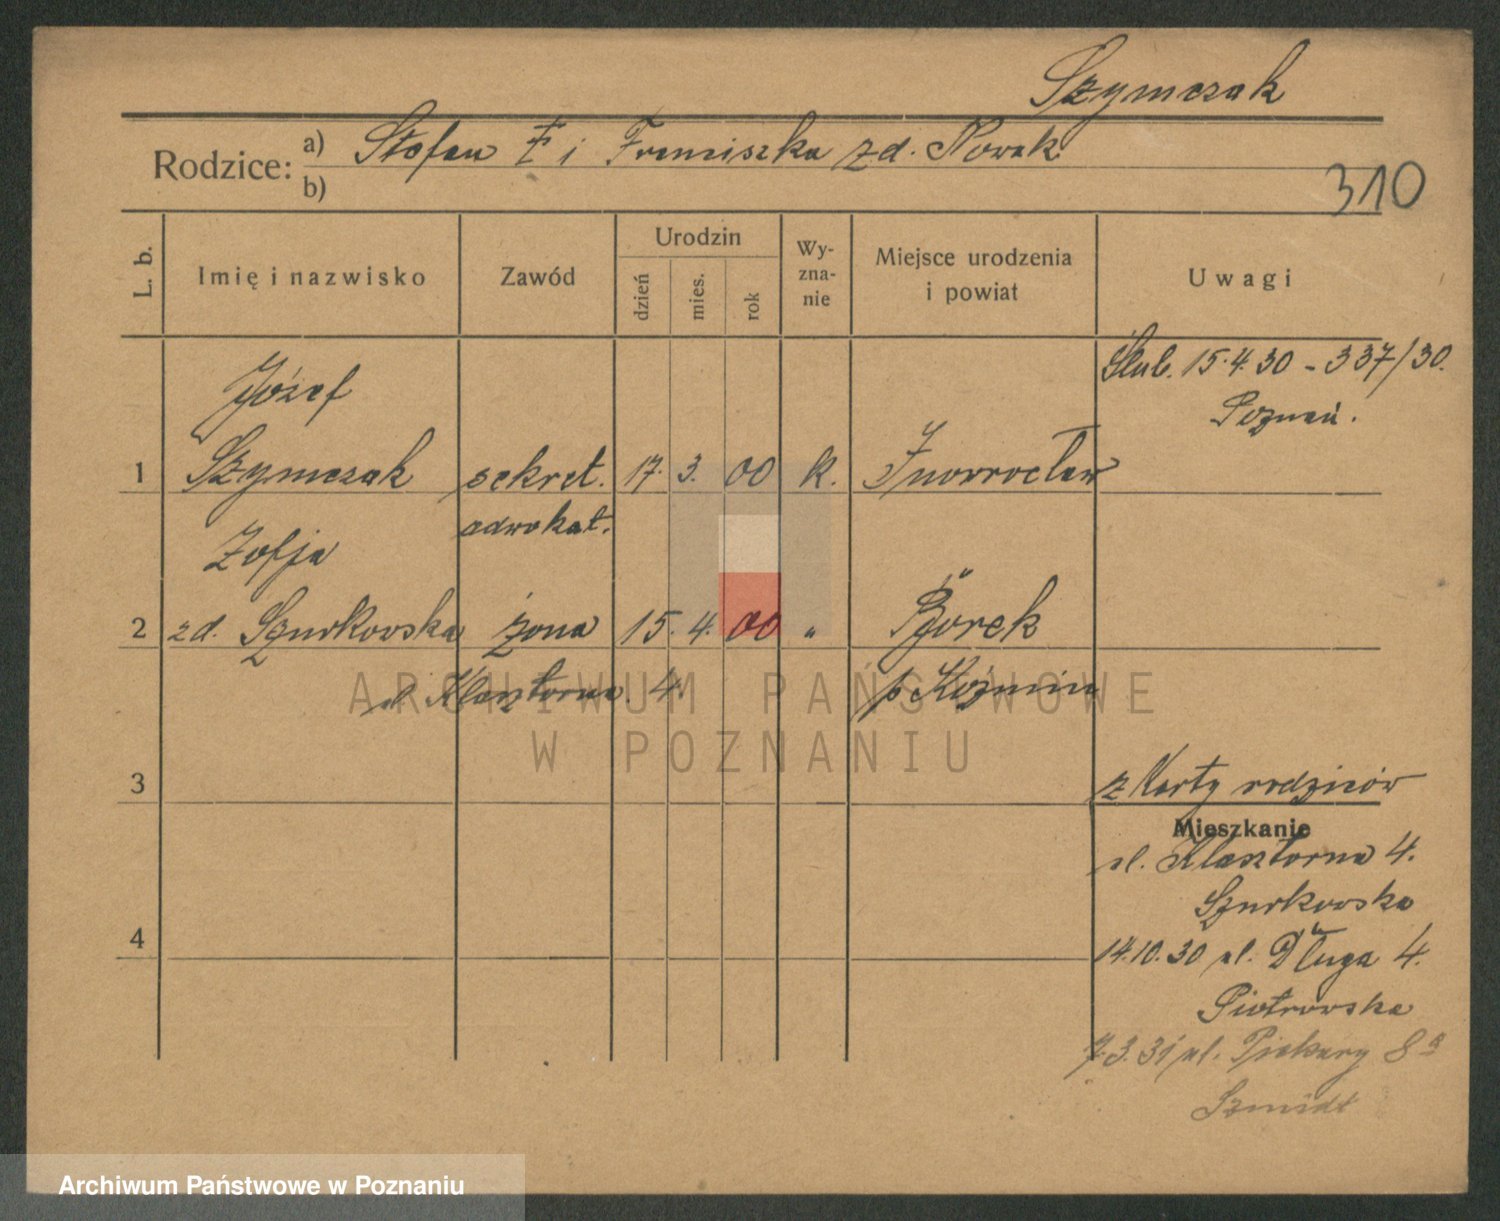 Szymczak
Rodzice: a) Stefan i Franciszka zd. Nowak
b)
310
L. b.
Imię i nazwisko
Zawód
Urodzin
dzień
mies.
rok
Wy-
zna-
nie
Miejsce urodzenia
i powiat
Uwagi
Ślub. 15.4.30 - 337/30.
Poznań.
Józef
1 Szymczak sekret. 17. 3. 00 k. Inowrocław
adwokat.
Zofja
2 zd. Szurkowska żona 15. 4. 00 " Borek
ul. Klasztorna 4. p. Koźmin
ARCHIWUM PAŃSTWOWE
W POZNANIU
3
z Karty rodziców
Mieszkanie
ul. Klasztorna 4.
Szurkowska
4
14.10.30 ul. Długa 4.
Piotrowska
7.3.31 ul. Piekary 8
Szmidt
Archiwum Państwowe w Poznaniu